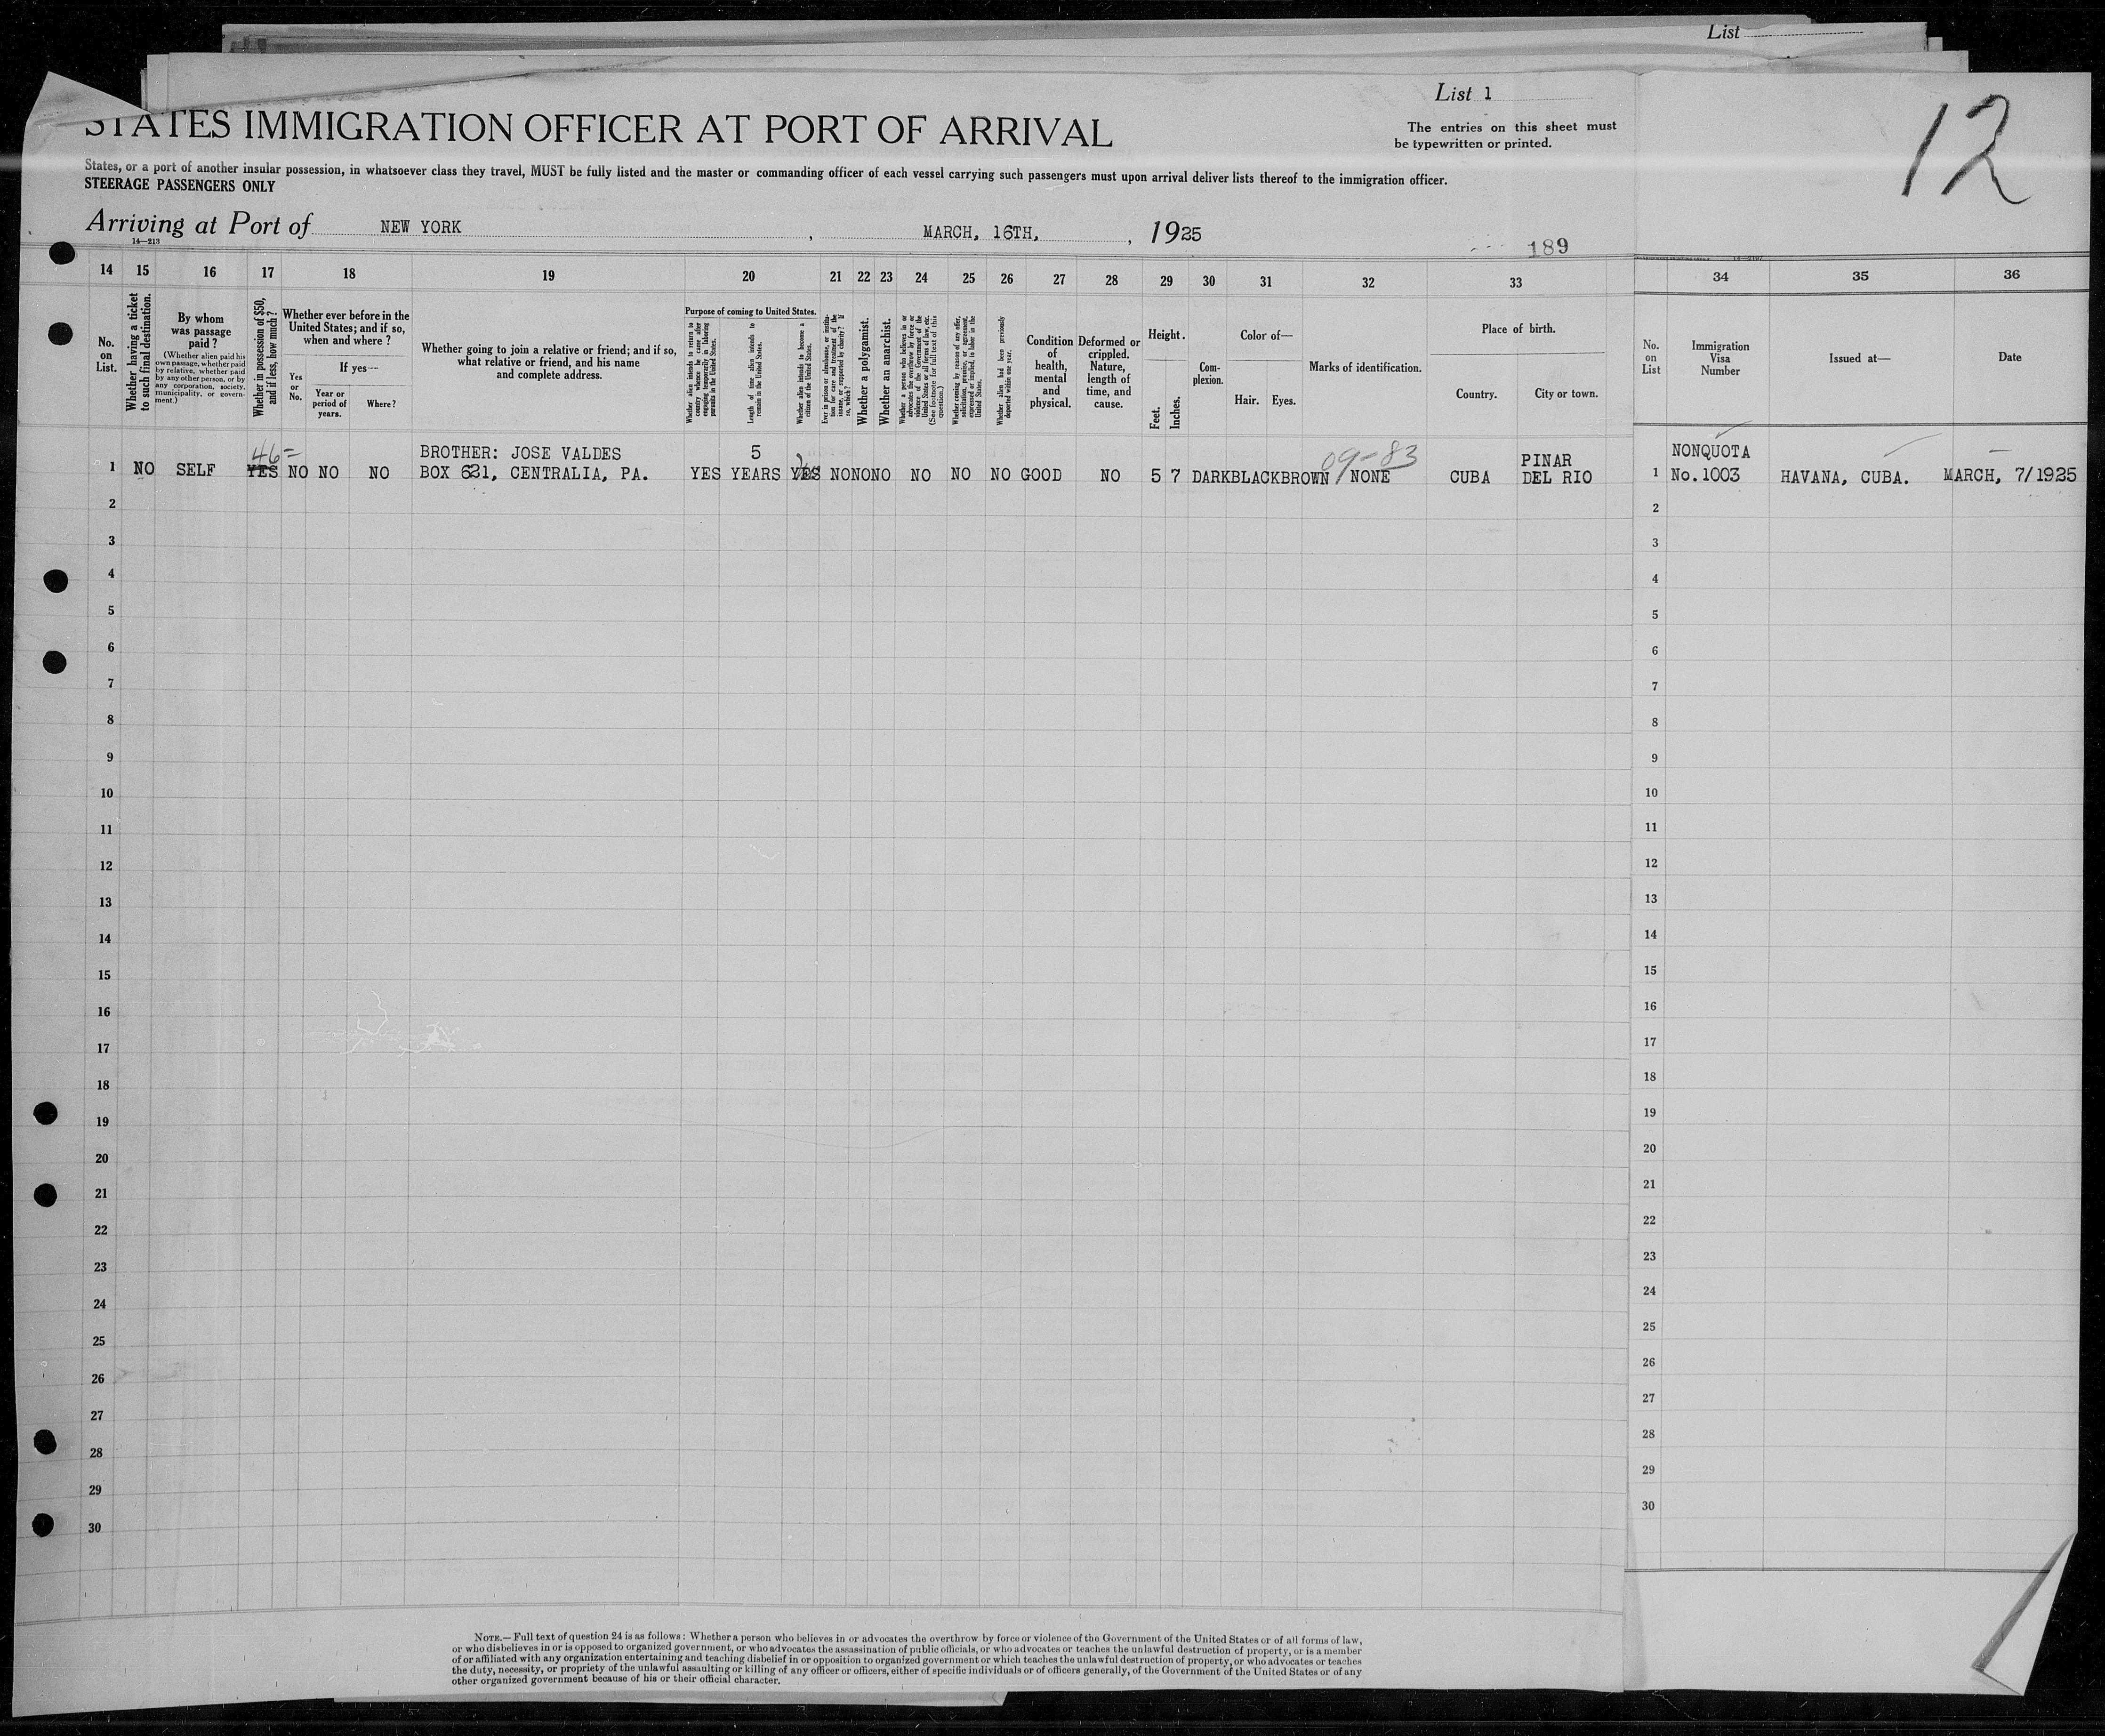 List
List 1
12
STATES IMMIGRATION OFFICER AT PORT OF ARRIVAL
The entries on this sheet must
be typewritten or printed.
States, or a port of another insular possession, in whatsoever class they travel, MUST be fully listed and the master or commanding officer of each vessel carrying such passengers must upon arrival deliver lists thereof to the immigration officer.
STEERAGE PASSENGERS ONLY
Arriving at Port of NEW YORK, MARCH, 16TH, , 1925
14—213
189
14 15 16 17 18 19 20 21 22 23 24 25 26 27 28 29 30 31 32 33 34 35 36
No.
on
List.
Whether having a ticket
to such final destination.
By whom
was passage
paid?
(Whether alien paid his
own passage, whether paid
by relative, whether paid
by any other person, or by
any corporation, society,
municipality, or govern-
ment.)
Whether in possession of $50,
and if less, how much?
Whether ever before in the
United States; and if so,
when and where?
Yes
or
No.
If yes—
Year or
period of
years.
Where?
Whether going to join a relative or friend; and if so,
what relative or friend, and his name
and complete address.
Purpose of coming to United States.
Whether alien intends to return to
country whence he came after
engaging temporarily in laboring
pursuits in the United States.
Length of time alien intends to
remain in the United States.
Whether alien intends to become a
citizen of the United States.
Ever in prison or almshouse, or institu-
tion for care and treatment of the
insane, or supported by charity? If
so, which?
Whether a polygamist.
Whether an anarchist.
Whether a person who believes in or
advocates the overthrow by force or
violence of the Government of the
United States or all forms of law, etc.
(See footnote for full text of this
question.)
Whether coming by reason of any offer,
solicitation, promise, or agreement,
expressed or implied, to labor in the
United States.
Whether alien had been previously
deported within one year.
Condition
of
health,
mental
and
physical.
Deformed or
crippled.
Nature,
length of
time, and
cause.
Height.
Feet.
Inches.
Com-
plexion.
Color of—
Hair. Eyes.
Marks of identification.
Place of birth.
Country. City or town.
No.
on
List
Immigration
Visa
Number
Issued at—
Date
46= BROTHER: JOSE VALDES 5 09-83 PINAR NONQUOTA
1 NO SELF YES NO NO NO BOX 631, CENTRALIA, PA. YES YEARS YES NO NO NO NO NO NO GOOD NO 5 7 DARK BLACK BROWN NONE CUBA DEL RIO 1 No.1003 HAVANA, CUBA. MARCH, 7/1925
2 2
3 3
4 4
5 5
6 6
7 7
8 8
9 9
10 10
11 11
12 12
13 13
14 14
15 15
16 16
17 17
18 18
19 19
20 20
21 21
22 22
23 23
24 24
25 25
26 26
27 27
28 28
29 29
30 30
NOTE.—Full text of question 24 is as follows: Whether a person who believes in or advocates the overthrow by force or violence of the Government of the United States or of all forms of law,
or who disbelieves in or is opposed to organized government, or who advocates the assassination of public officials, or who advocates or teaches the unlawful destruction of property, or is a member
of or affiliated with any organization entertaining and teaching disbelief in or opposition to organized government or which teaches the unlawful destruction of property, or who advocates or teaches
the duty, necessity, or propriety of the unlawful assaulting or killing of any officer or officers, either of specific individuals or of officers generally, of the Government of the United States or of any
other organized government because of his or their official character.